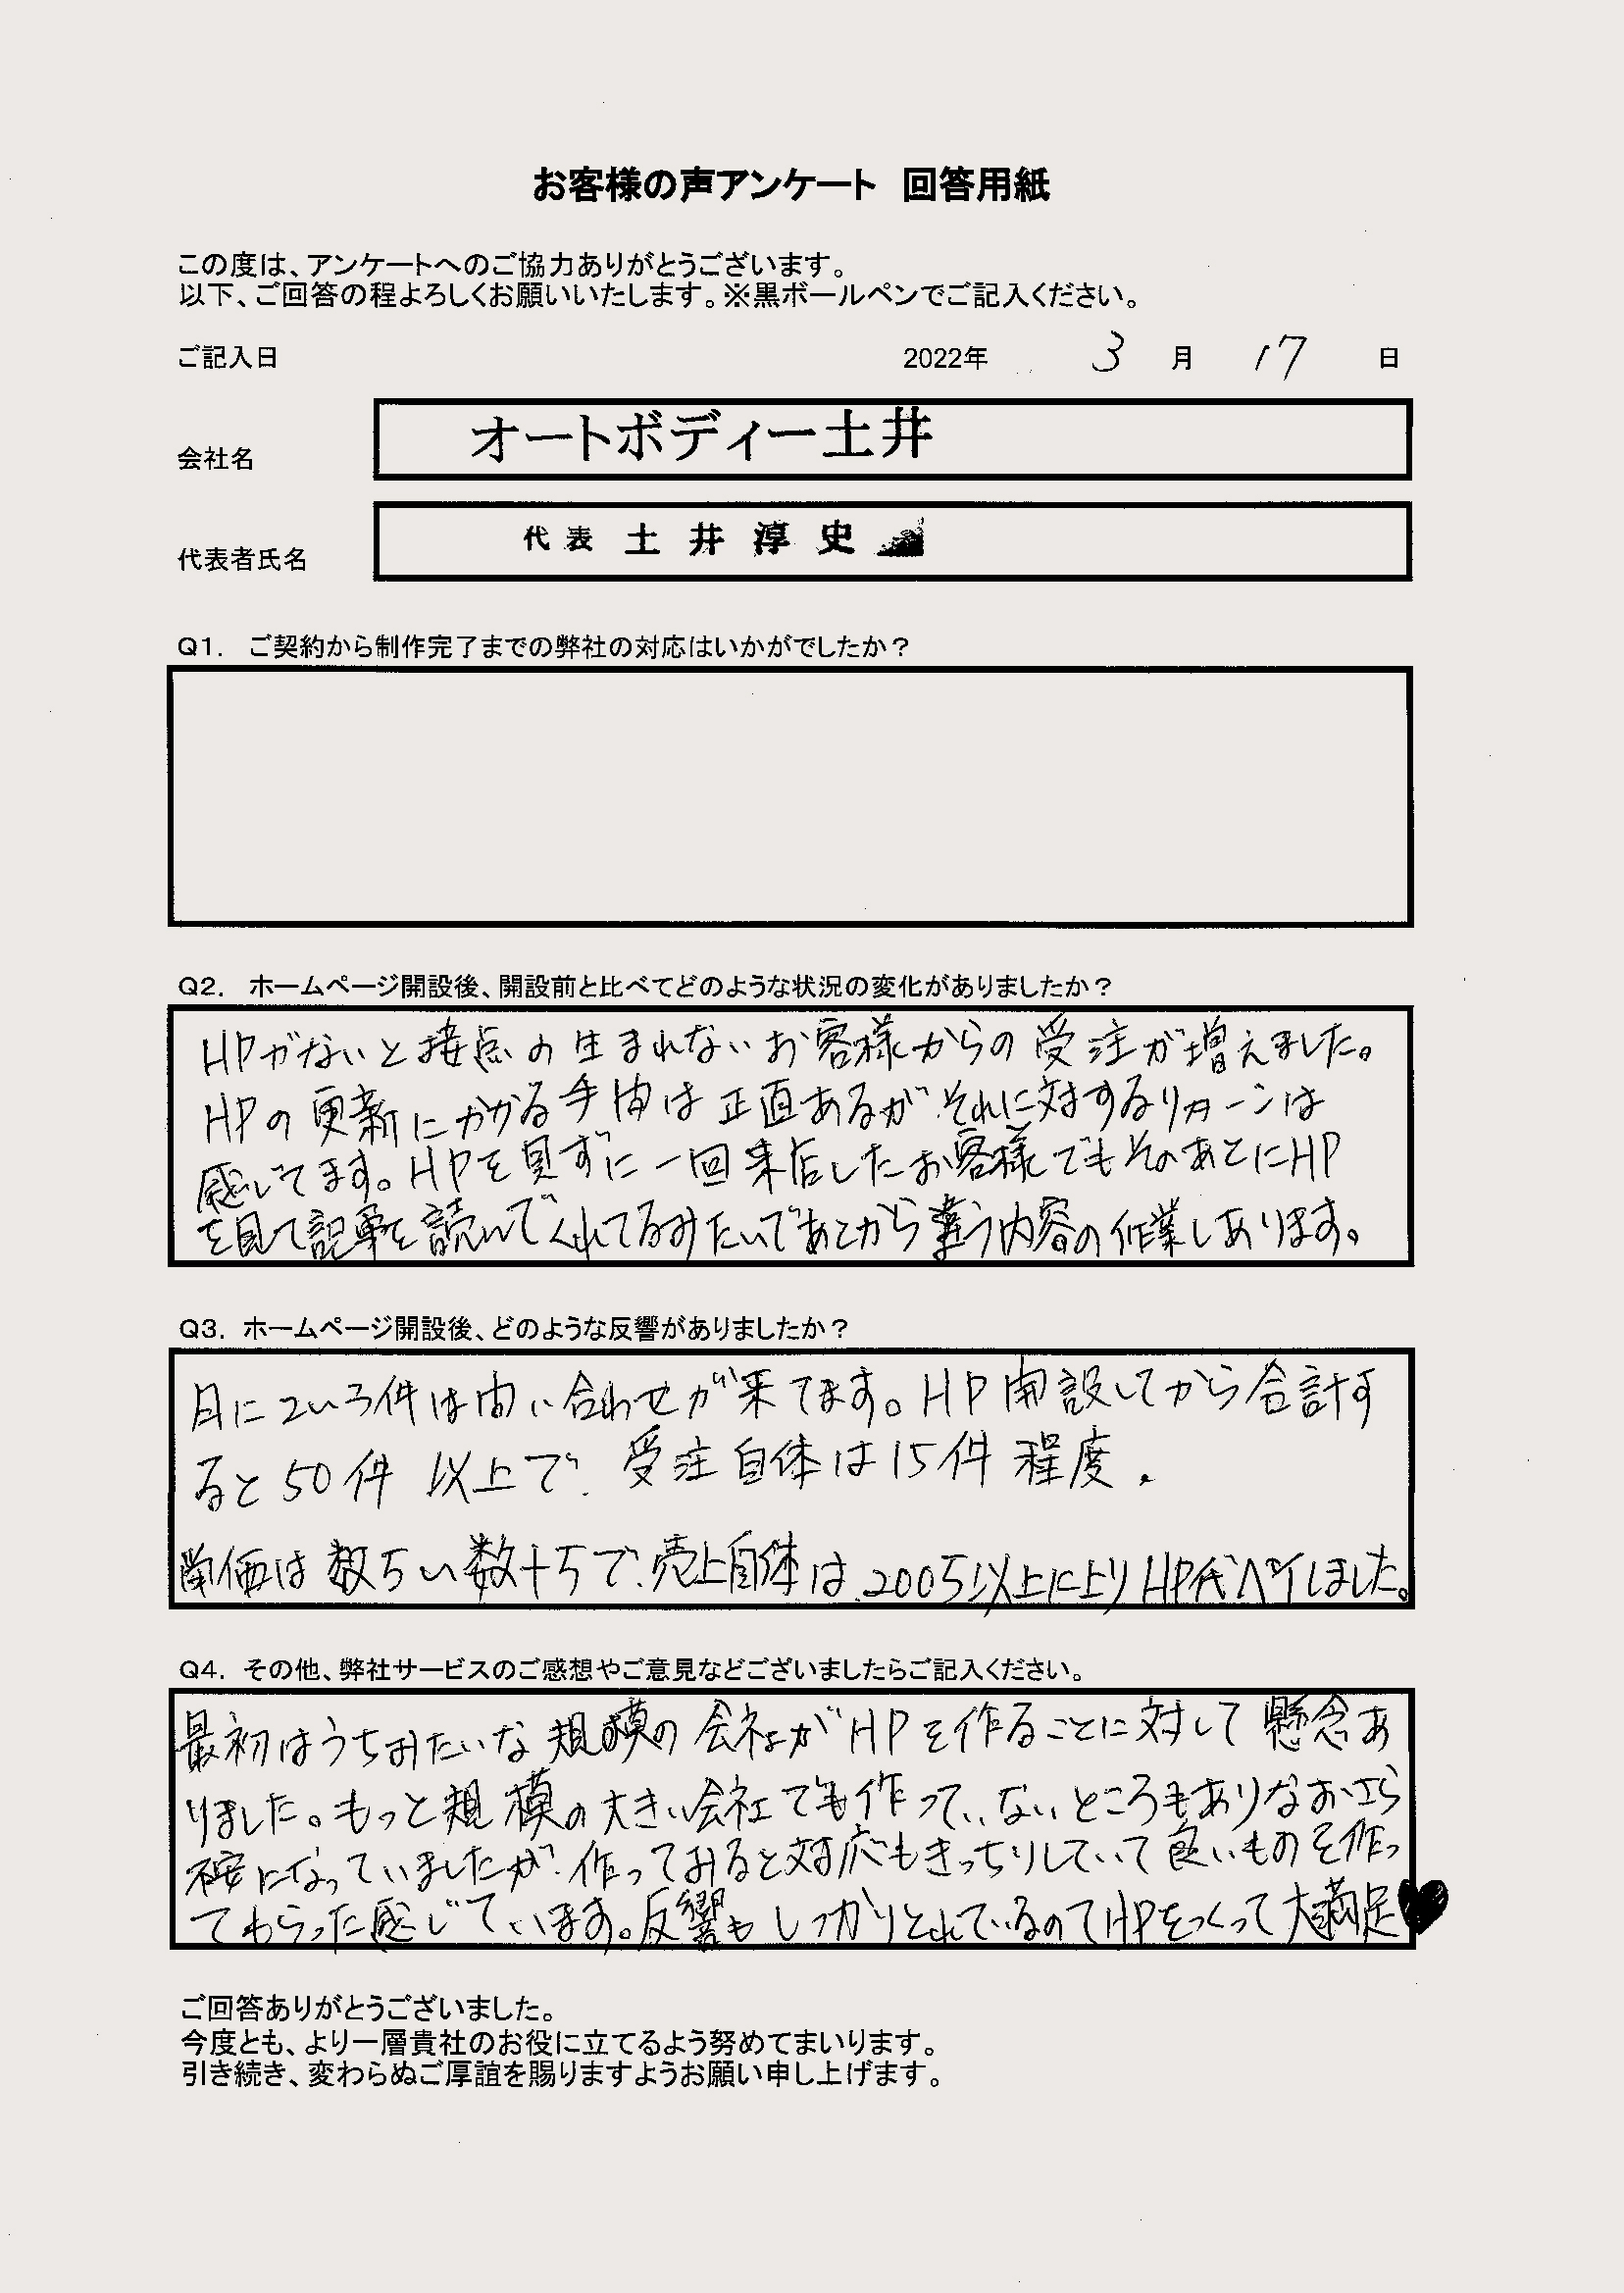 お客様の声アンケート 回答用紙
この度は、アンケートへのご協力ありがとうございます。
以下、ご回答の程よろしくお願いいたします。※黒ボールペンでご記入ください。
ご記入日 2022年 3 月 17 日
会社名 オートボディー土井
代表者氏名 代表 土井淳史
Q1. ご契約から制作完了までの弊社の対応はいかがでしたか?
Q2. ホームページ開設後、開設前と比べてどのような状況の変化がありましたか?
HPがないと接点の生まれないお客様からの受注が増えました。
HPの更新にかかる手間は正直あるが、それに対するリターンは
感じてます。HPを見ずに一回来店したお客様でもそのあとにHP
を見て記事を読んでくれてるみたいであとから違う内容の作業もあります。
Q3. ホームページ開設後、どのような反響がありましたか?
月に2い3件は問い合わせが来てます。HP開設してから合計す
ると50件以上で、受注自体は15件程度。
単価は数万い数十万で、売上自体は、200万以上によりHP代ペイしました。
Q4. その他、弊社サービスのご感想やご意見などございましたらご記入ください。
最初はうちみたいな規模の会社がHPを作ることに対して懸念あ
りました。もっと規模の大きい会社でも作っていないところもありなおさら
不安になっていましたが、作ってみると対応もきっちりしていて良いものを作っ
てもらった感じています。反響もしっかりとれているのでHPをつくって大満足♥
ご回答ありがとうございました。
今度とも、より一層貴社のお役に立てるよう努めてまいります。
引き続き、変わらぬご厚誼を賜りますようお願い申し上げます。